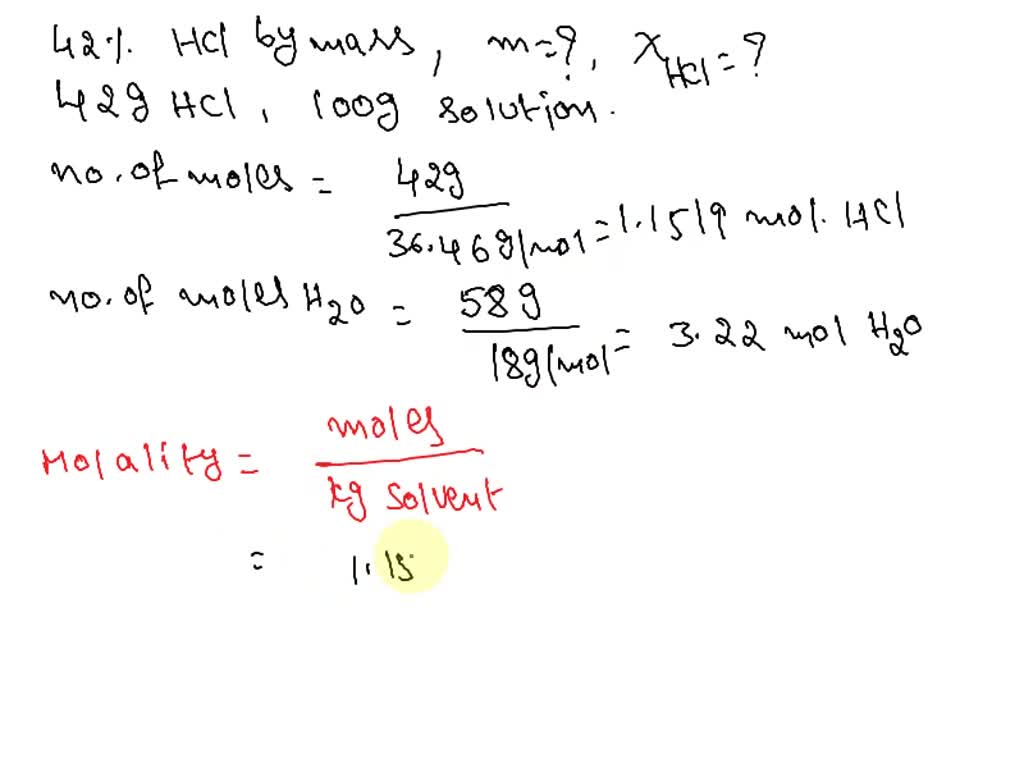 42% HCl by mass, m=?, xHCl=?
42g HCl, 100g solution.
no. of moles = 42g / 36.46g/mol = 1.1519 mol. HCl
no. of moles H2O = 58g / 18g/mol = 3.22 mol H2O
Molality = moles / kg solvent
= 1.15